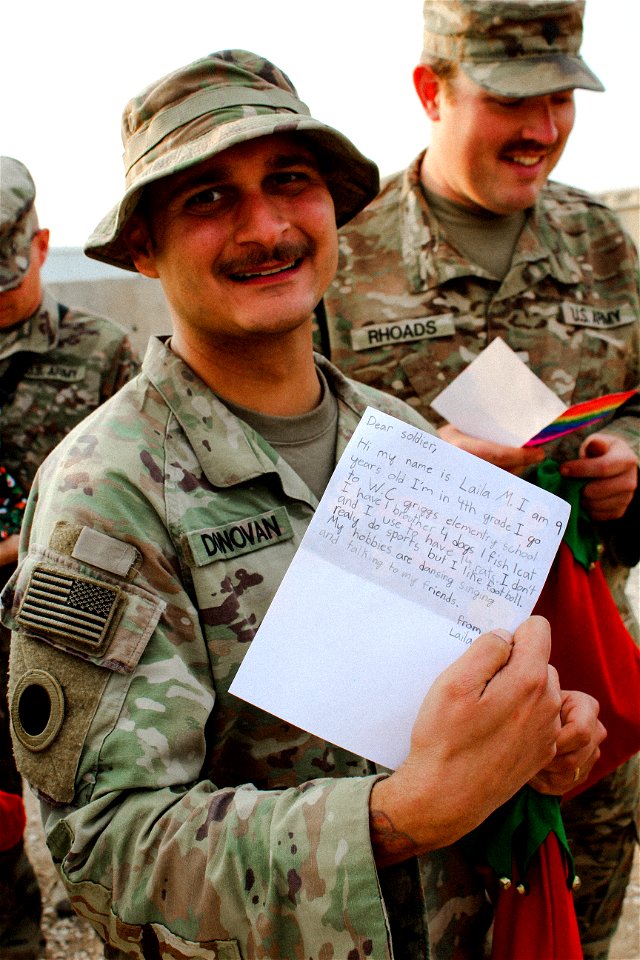 RHOADS
U.S. ARMY
Dear soldier,
Hi my name is Laila M. I am 9
years old I'm in 4th grade I go
to W.C. griggs elementry school
I have 1 brother 4 dogs 1 fish 1 cat
and I use to have 14 cats. I don't
realy do sports but I like football.
My hobbies are dansing singing
and talking to my friends.
from
Laila
DINOVAN
ARMY